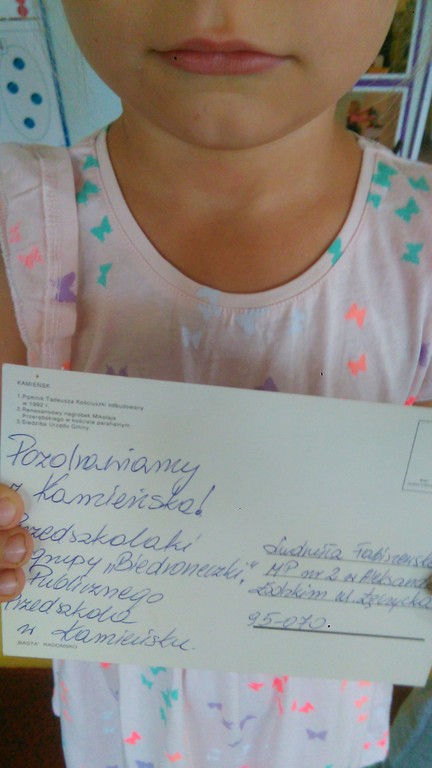 KAMIEŃSK
1. Pomnik Tadeusza Kościuszki odbudowany
w 1982 r.
2. Renesansowy nagrobek Mikołaja
Przerębskiego w kościele parafialnym.
3. Siedziba Urzędu Gminy
Pozdrawiamy
z Kamieńska!
Przedszkolaki
grupy „Biedroneczki"
Publicznego
Przedszkola
w Kamieńsku.
MP nr 2 w
Łódzkim ul. Łęczycka
95-070.
RADOMSKO